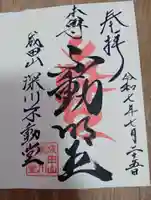 奉拝
令和七年七月二十五日
本尊
不動明王
成田山
深川不動堂
成田山